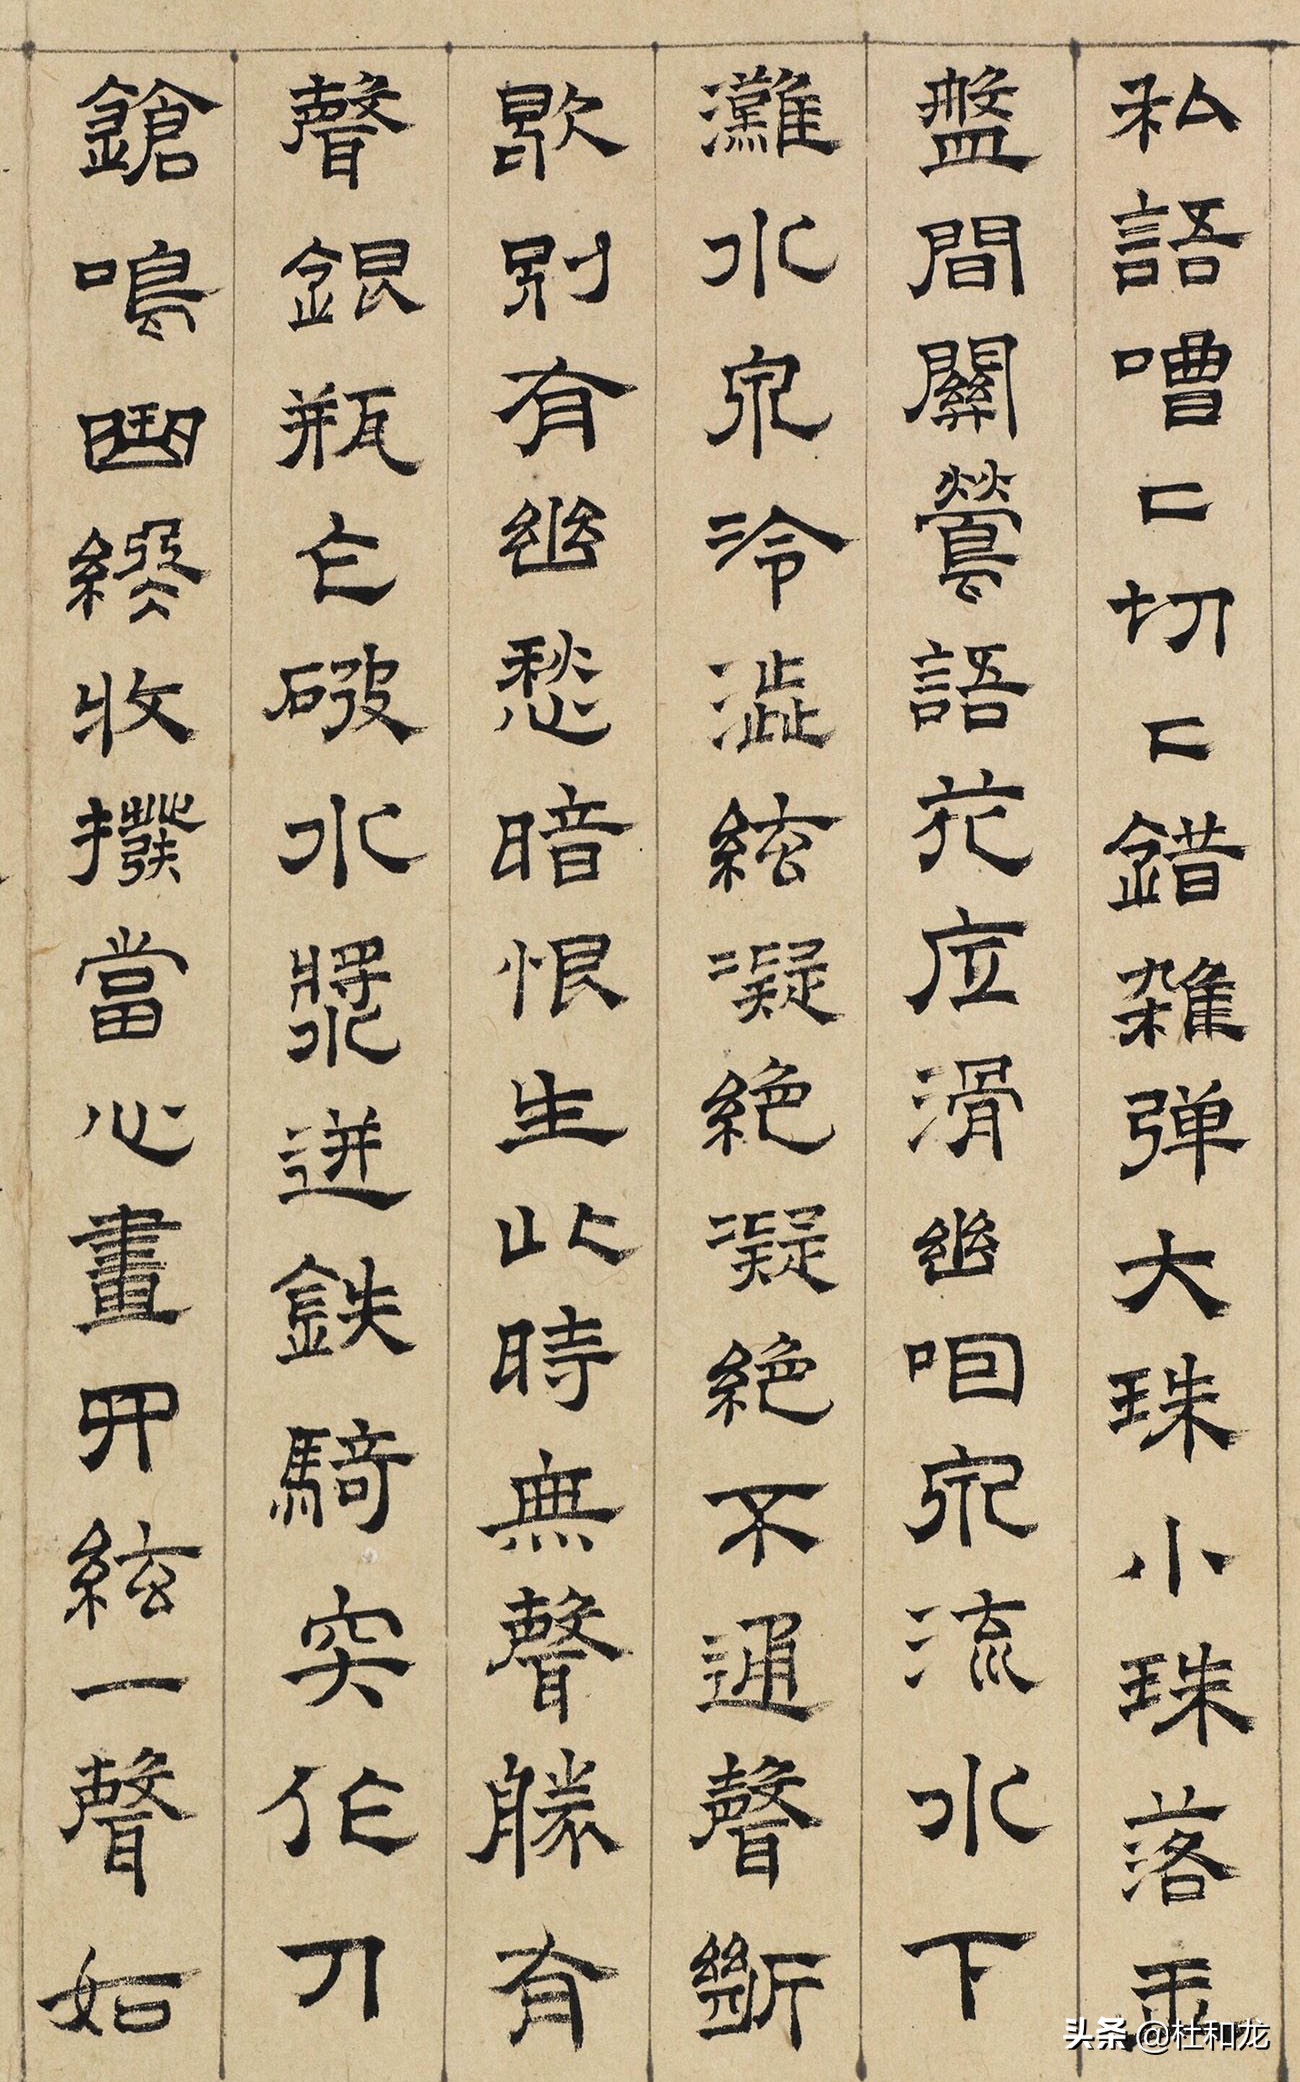 私語嘈〻切〻錯雑弹大珠小珠落玉
盤間關鶯語花底滑幽咽泉流水下
灘水泉冷澁絃凝絶凝絶不通聲斷
歇別有幽愁暗恨生此時無聲勝有
聲銀瓶乍破水漿迸鉄騎突作刀
鎗鳴曲終收撥當心畫四絃一聲如
头条 @杜和龙